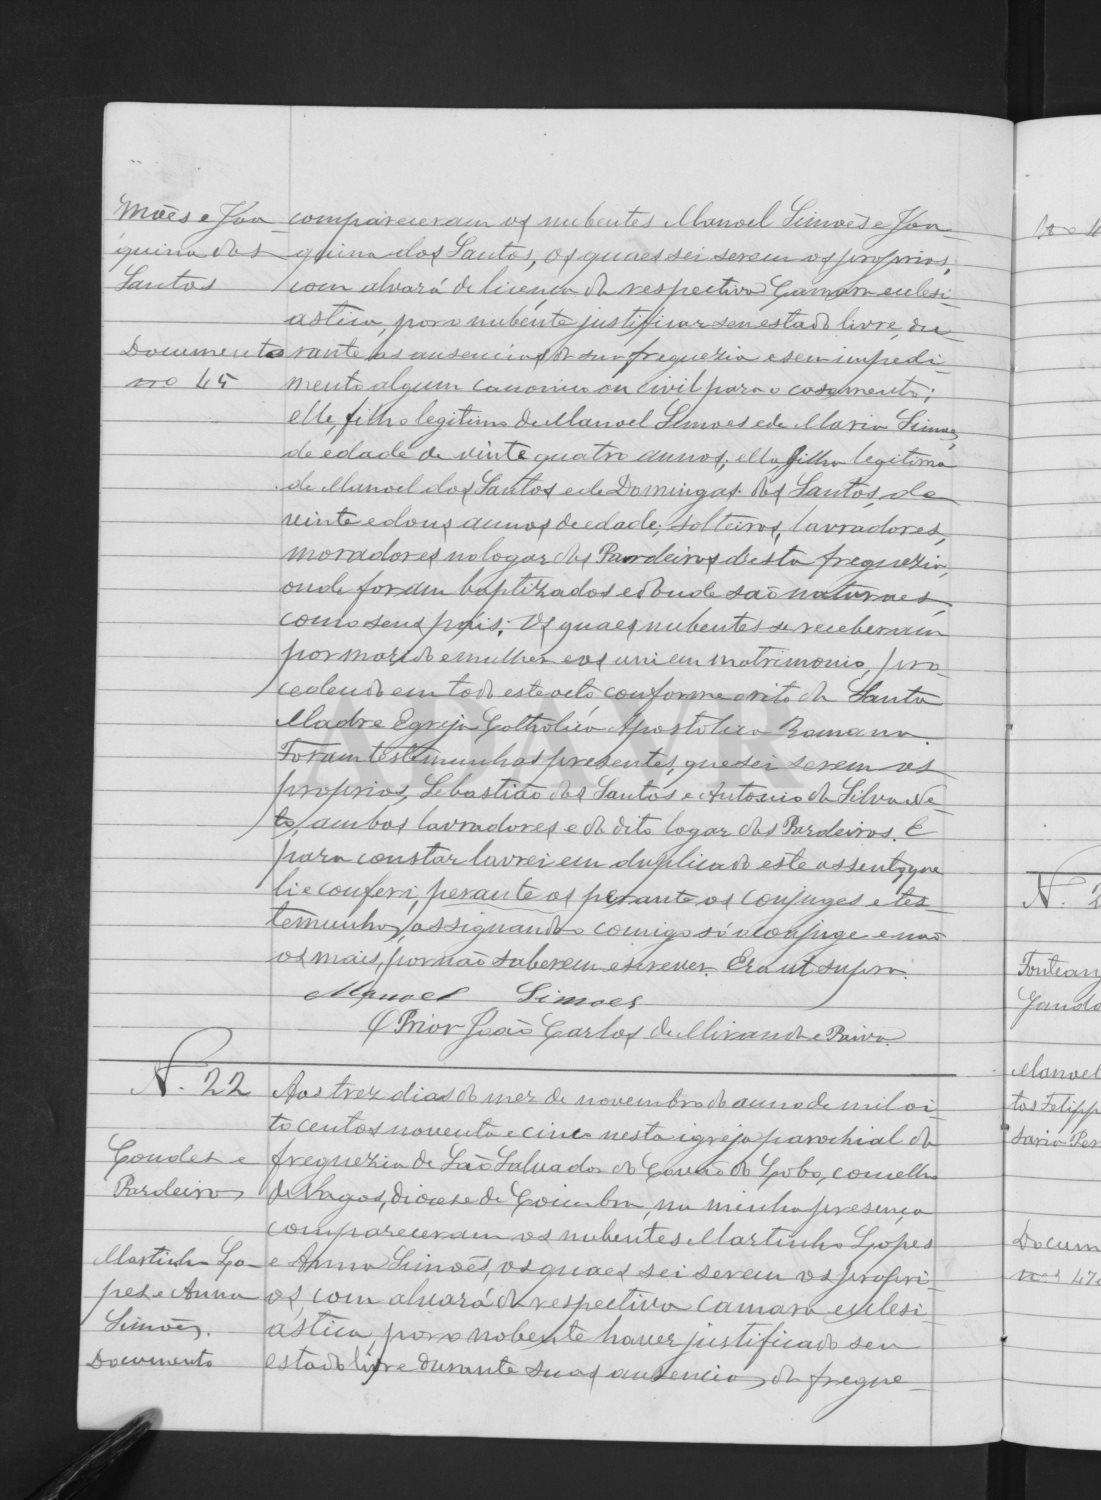 Mões e Joa-
quina dos
Santos
Documento
nº 45
compareceram os nubentes Manoel Simões e Joa-
quina dos Santos, os quaes sei serem os proprios,
com alvará de licença da respectiva Camara eclesi-
astica, para nubente justificar seu estado livre, du-
rante as ausencias da sua freguezia e sem impedi-
mento algum canonico ou civil para o casamento;
elle, filho legitimo de Manoel Simoes e de Maria Simões,
de edade de vinte quatro annos; ella filha legitima
de Manoel dos Santos e de Domingas dos Santos, de
vinte e dous annos de edade; solteiros, lavradores,
moradores no logar dos Pardeiros d'esta freguezia,
onde foram baptizados e d'onde são naturaes,
como seus pais; Os quaes nubentes se receberam
por marido e mulher e os uni em matrimonio, pro-
cedendo em todo este acto conforme o rito da Santa
Madre Egreja Catholica Apostolica Romana.
Foram testemunhas presentes, que sei serem os
proprios, Sebastião dos Santos e Antonio da Silva Ne-
to, ambos lavradores e do dito logar dos Pardeiros. E
para constar lavrei em duplicado este assento, que
li e conferi, perante os perante os conjuges e tes-
temunhas, assignando comigo só o conjuge e não
os mais, por não saberem escrever. Era ut supra.
Manoel Simoes
O Prior João Carlos de Miranda e Paiva.
N. 22
Condes e
Pardeiros
Martinho Lo-
pes e Anna
Simões.
Documento
Aos trez dias do mez de novembro do anno de mil oi-
to centos noventa e cinco nesta igreja parochial da
freguezia de São Salvador do Covão do Lobo, concelho
de Vagos, diocese de Coimbra, na minha presença
compareceram os nubentes Martinho Lopes
e Anna Simões, os quaes sei serem os propri-
os, com alvará da respectiva camara eclesi-
astica, para nobente haver justificado seu
estado livre durante suas ausencias da fregue-
N. 2
Fontean
Gando
Manoel
tos Felipp
saria Per
Docum
nos 47